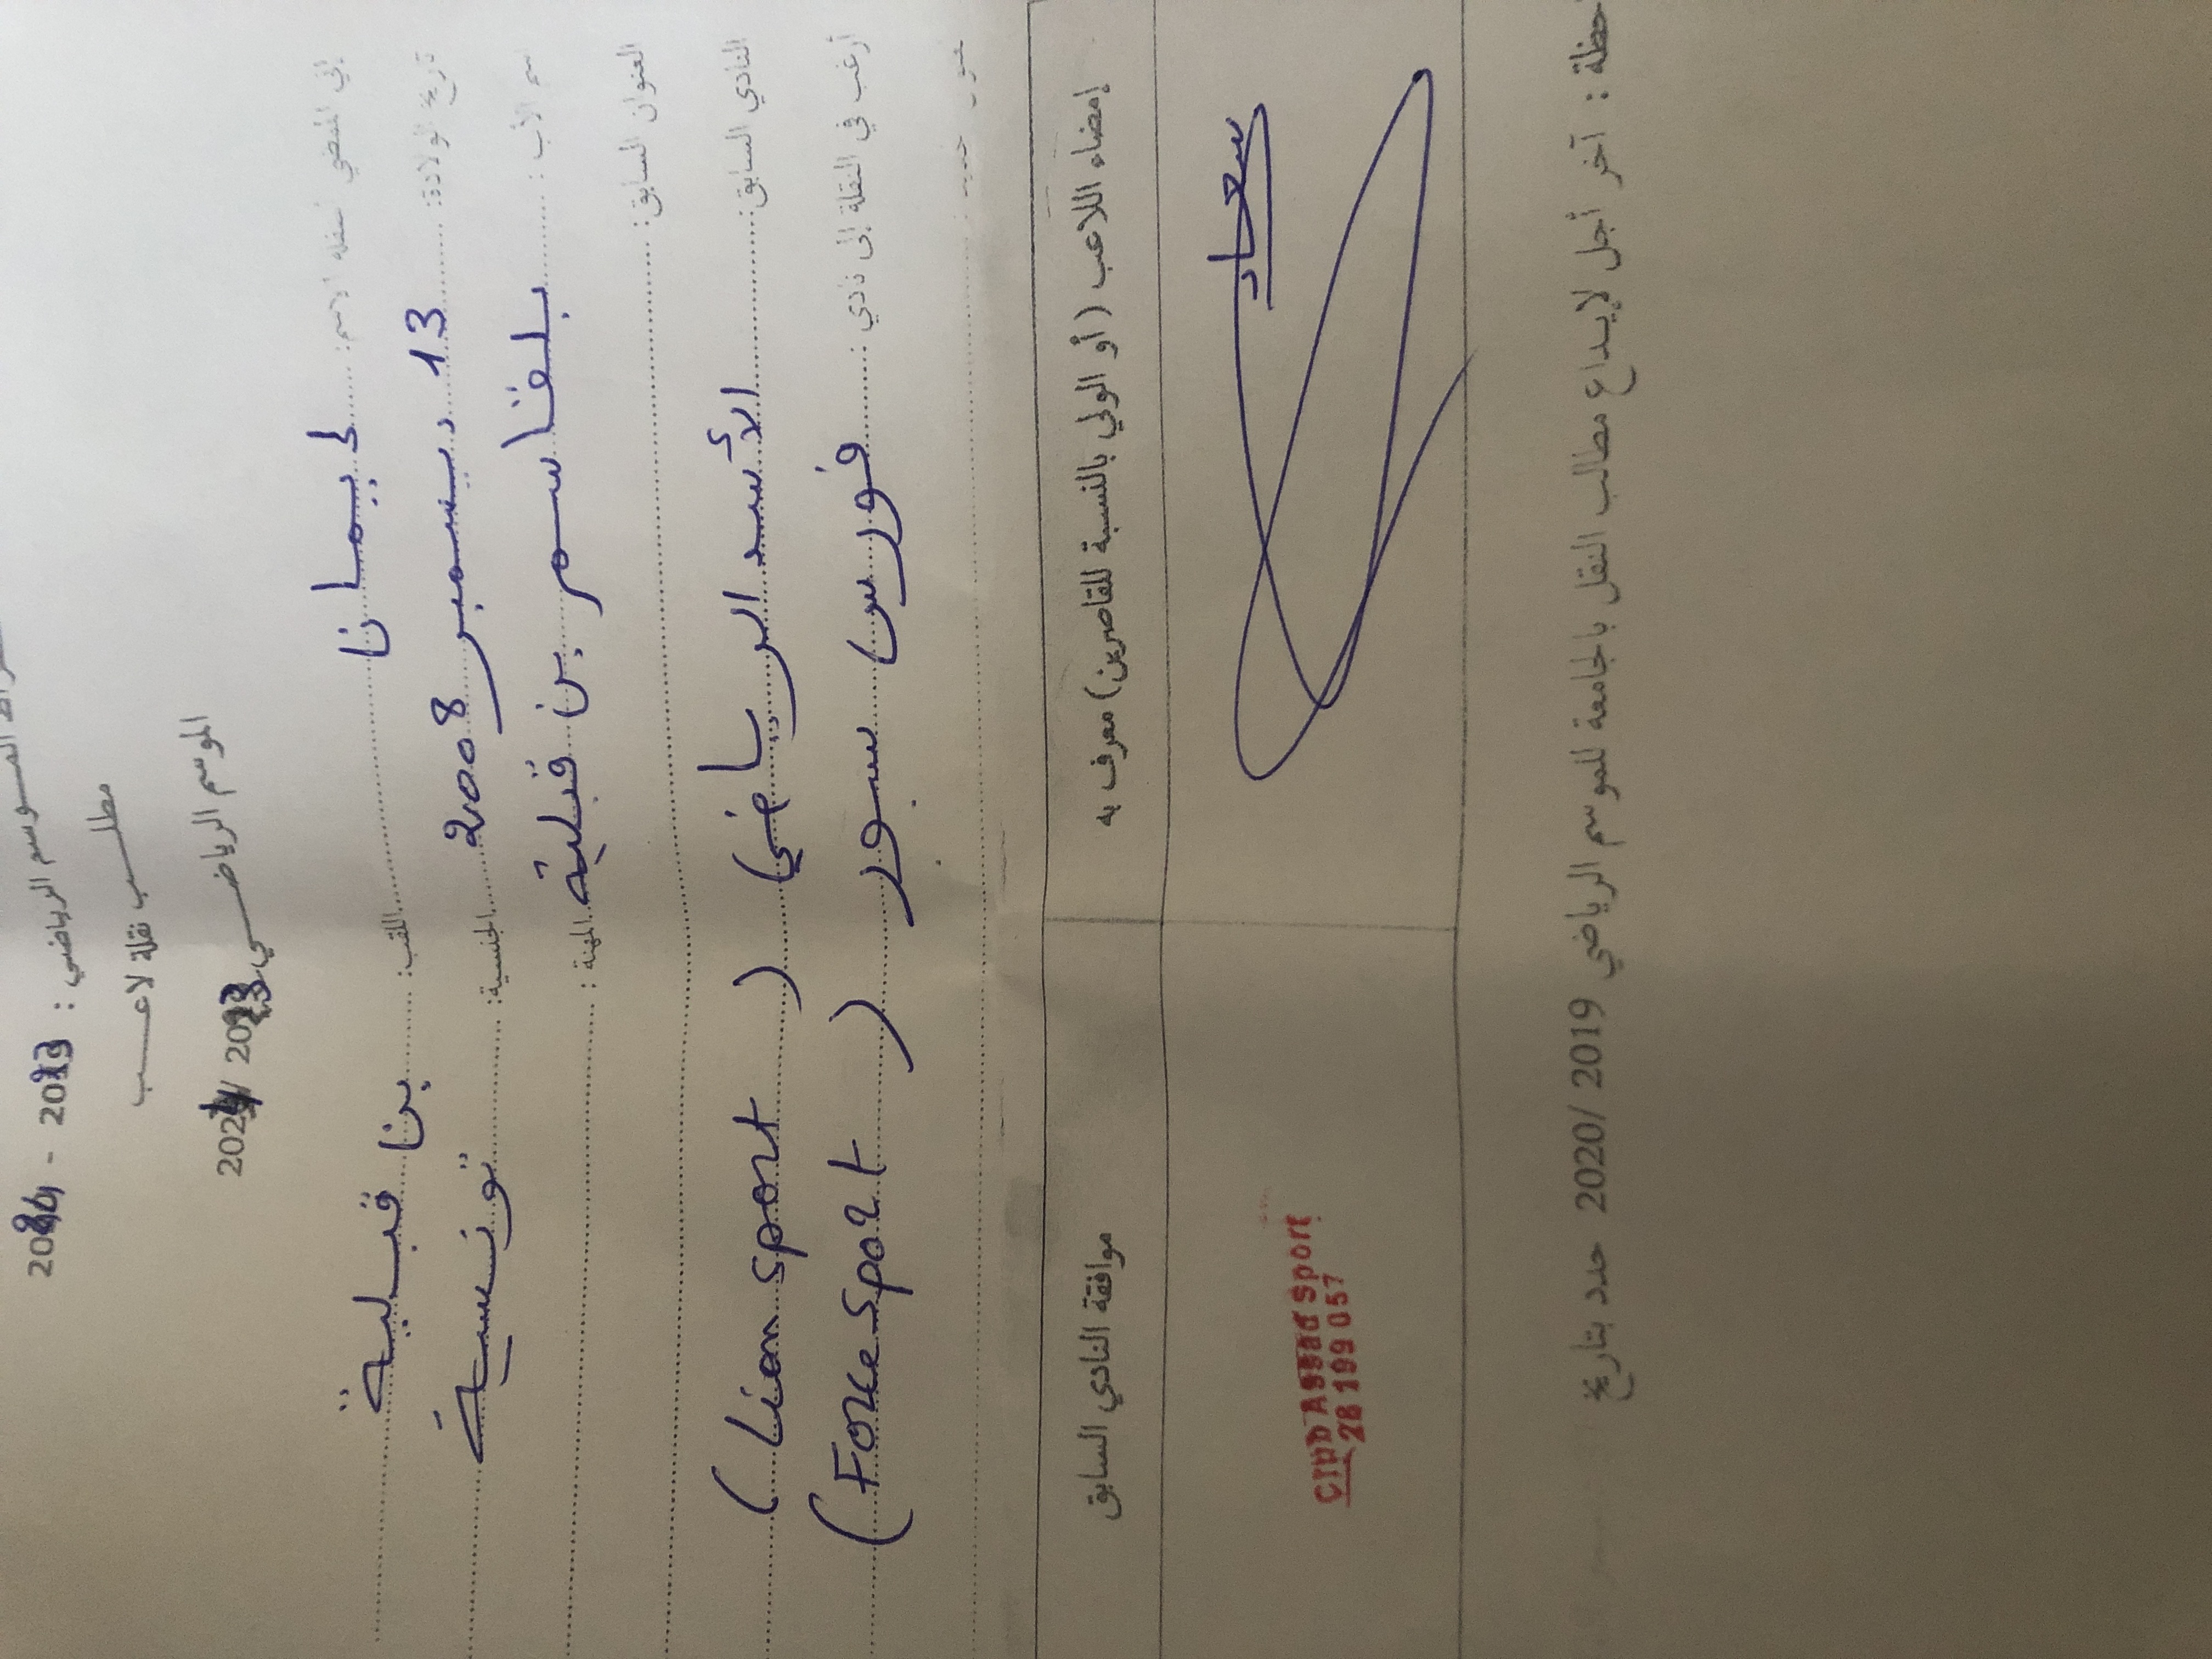 الموسم الرياضي : 2023 - 2024
مطلب نقلة لاعب
الموسم الرياضي 2023 / 2024
إني الممضي أسفله الاسم : ليمانا اللقب : بن قبلية
تاريخ الولادة : 13 ديسمبر 2008 الجنسية : تونسية
اسم الأب : بلقاسم بن قبلية المهنة :
العنوان السابق :
النادي السابق : الأسد الرياضي (Lion sport)
أرغب في النقلة إلى نادي : فورس سبور (Force sport)
إمضاء اللاعب (أو الولي بالنسبة للقاصرين) معرف به
موافقة النادي السابق
سعاد
Club Assad Sport
28 199 057
آخر أجل لإيداع مطالب النقل بالجامعة للموسم الرياضي 2019 /2020 حدد بتاريخ